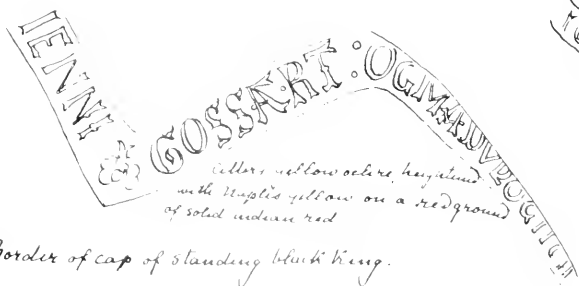 IENNI
GOSSART : OGM
letters yellow ochre, heightened
with Naples yellow on a red ground
of solid indian red
Border of cap of standing black king.